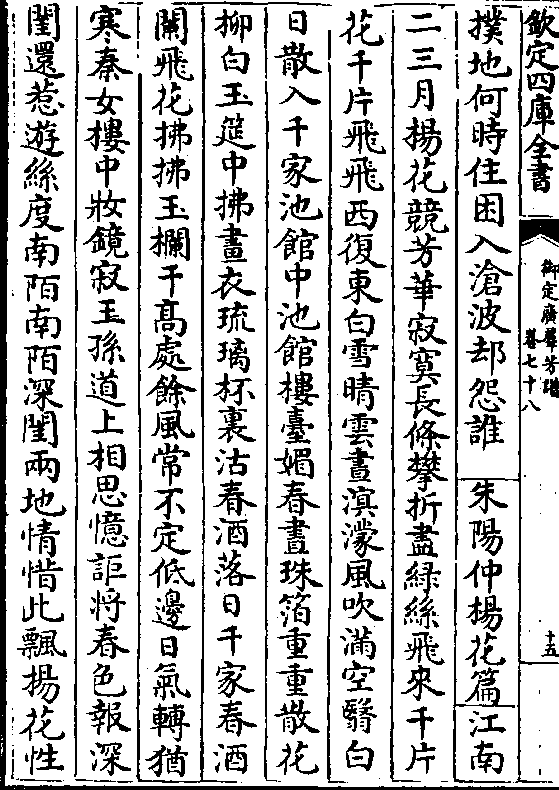 欽定四庫全書
御定廣羣芳譜
卷七十八
十五
撲地何時住困入滄波却怨誰　朱陽仲楊花篇江南
二三月楊花競芳華寂寞長條攀折盡緑絲飛來千片
花千片飛飛西復東白雪晴雲晝溟濛風吹滿空翳白
日散入千家池館中池館樓臺媚春晝珠箔重重散花
柳白玉筵中拂畫衣琉璃杯裏沽春酒落日千家春酒
闌飛花拂拂玉欄干髙處餘風常不定低邊日氣轉猶
寒秦女樓中妝鏡寂王孫道上相思憶詎将春色報深
閨還惹遊絲度南陌南陌深閨兩地情惜此飄揚花性